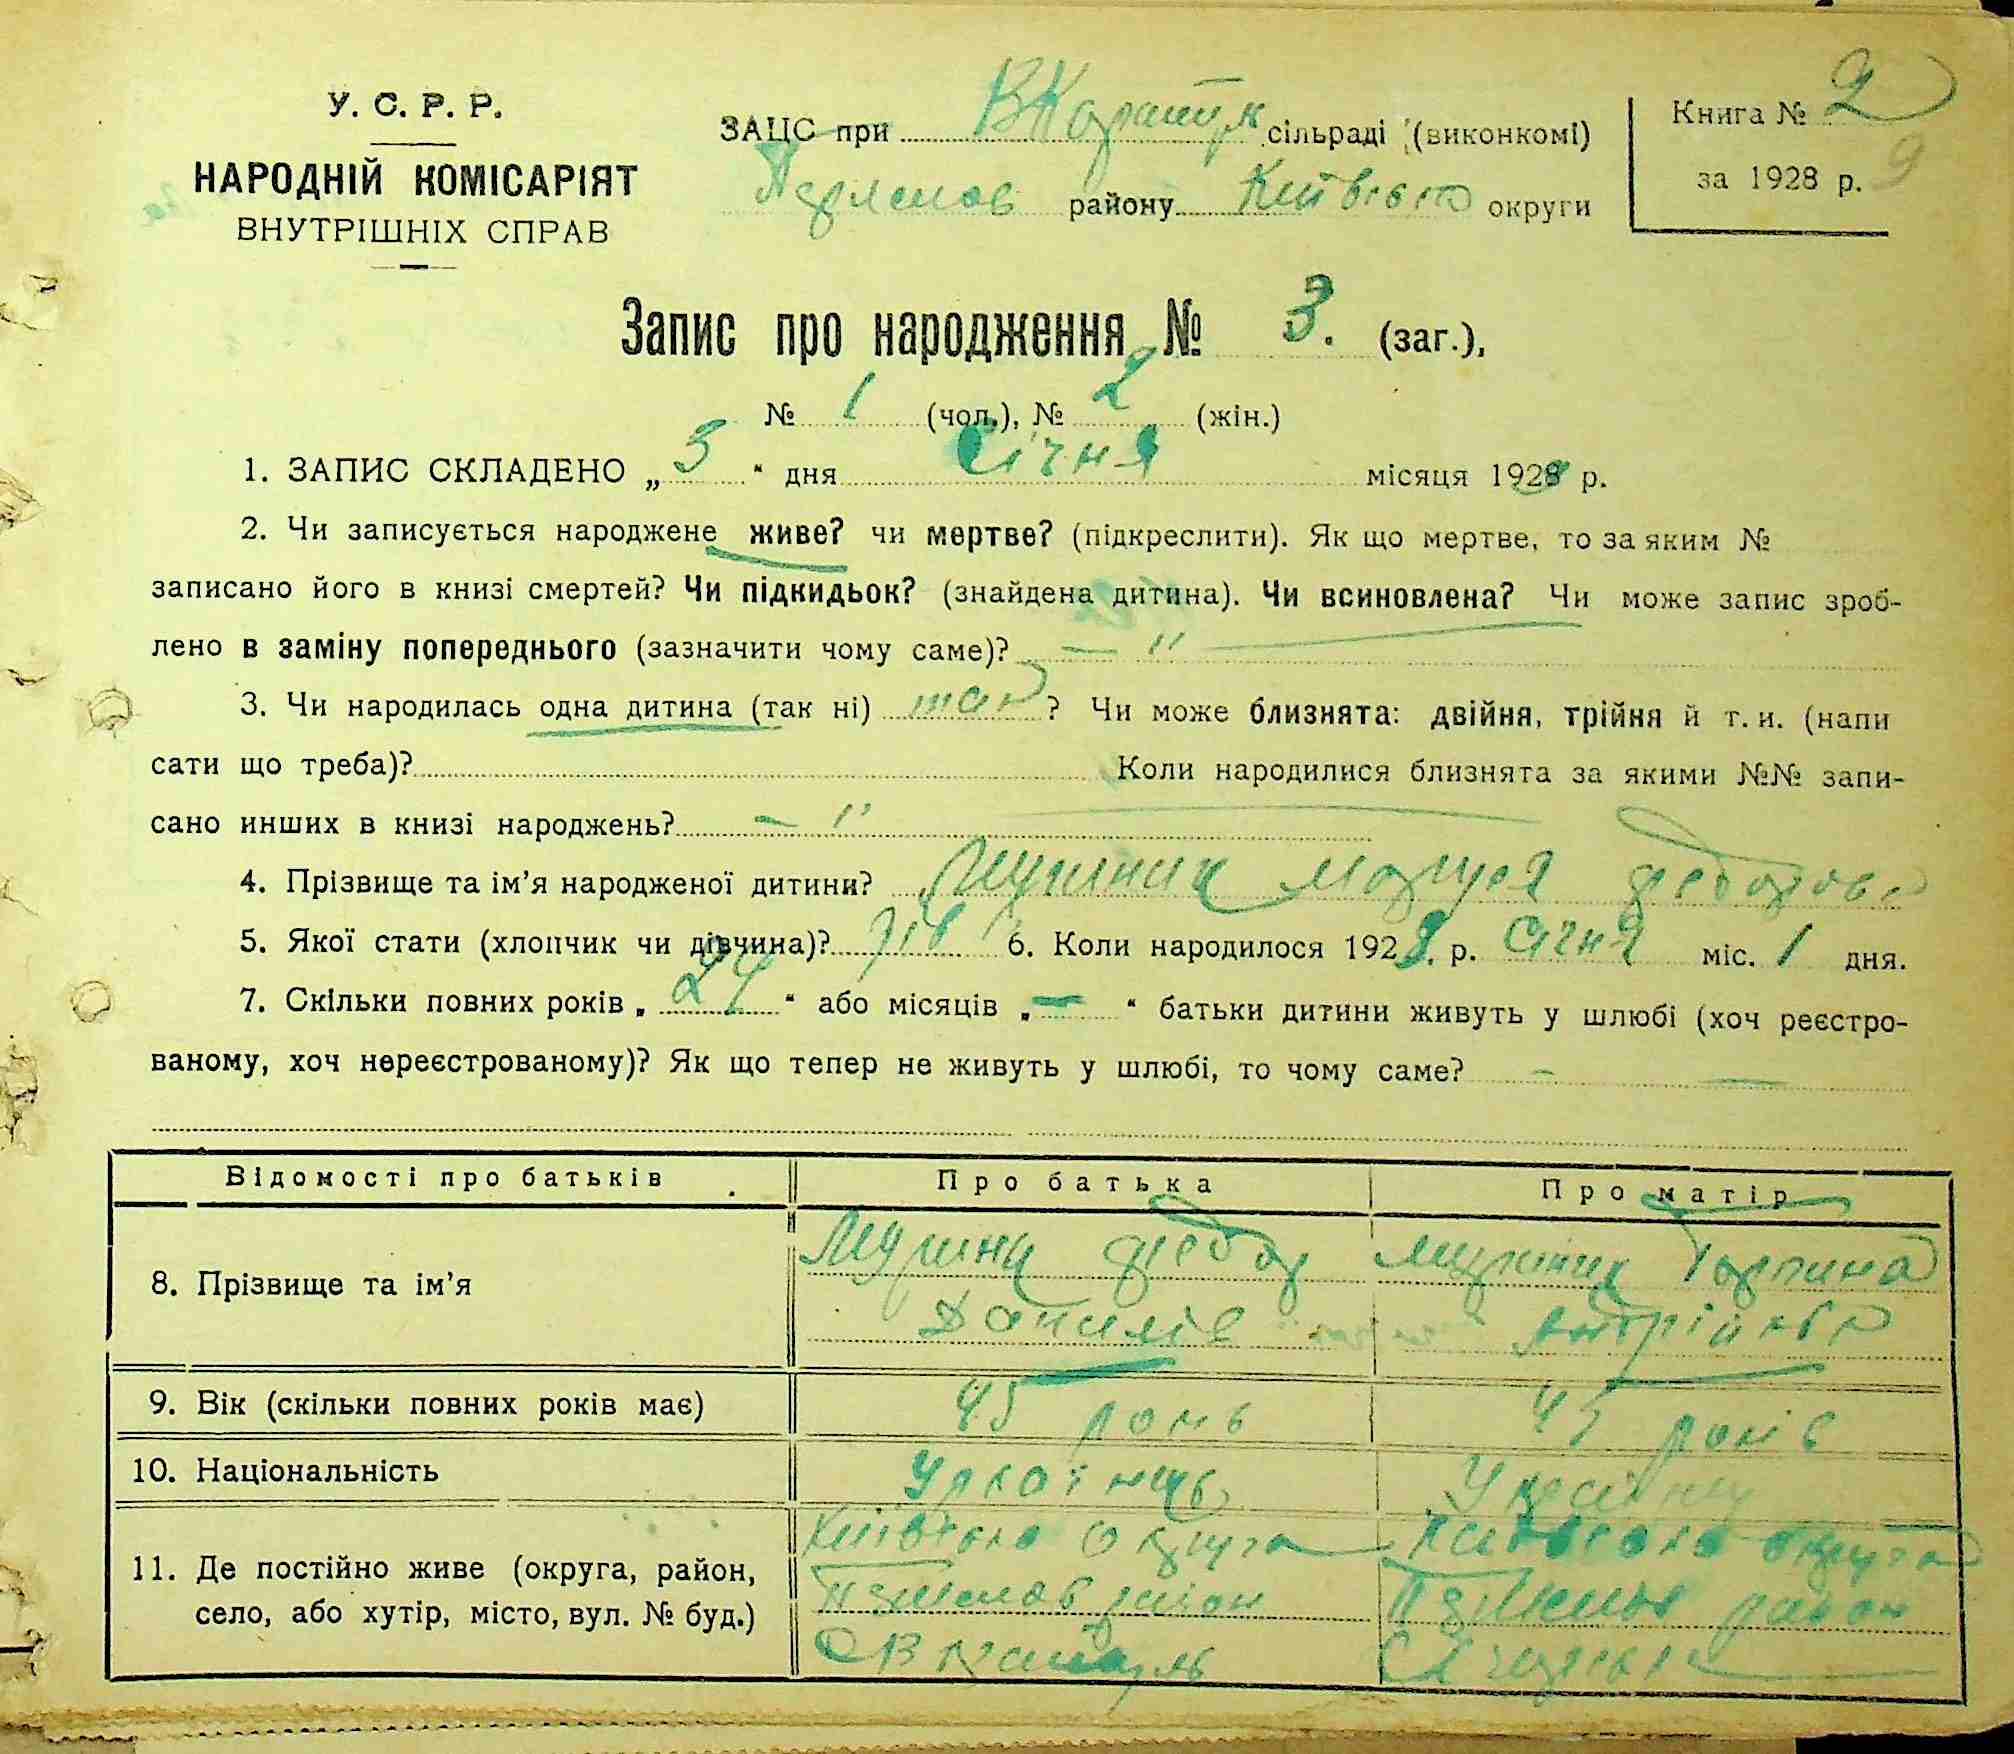 У. С. Р. Р.
НАРОДНІЙ КОМІСАРІЯТ
ВНУТРІШНІХ СПРАВ
ЗАЦС при ВКаратул сільраді (виконкомі)
району Київської округи
Книга № 2
за 1928 р. 9
Запис про народження № 3. (заг.),
№ 1 (чол.), № 2 (жін.)
1. ЗАПИС СКЛАДЕНО „ 3 “ дня Січня місяця 1928 р.
2. Чи записується народжене живе? чи мертве? (підкреслити). Як що мертве, то за яким №
записано його в книзі смертей? Чи підкидьок? (знайдена дитина). Чи всиновлена? Чи може запис зроб-
лено в заміну попереднього (зазначити чому саме)? — "
3. Чи народилась одна дитина (так ні) так ? Чи може близнята: двійня, трійня й т. и. (напи
сати що треба)? Коли народилися близнята за якими №№ запи-
сано инших в книзі народжень? — "
4. Прізвище та ім’я народженої дитини? Федорова
5. Якої стати (хлопчик чи дівчина)? дів 6. Коли народилося 1928. р. Січня міс. 1 дня.
7. Скільки повних років „ 24 “ або місяців „ — “ батьки дитини живуть у шлюбі (хоч реєстро-
ваному, хоч нереєстрованому)? Як що тепер не живуть у шлюбі, то чому саме? — —
Відомості про батьків
Про батька
Про матір
8. Прізвище та ім’я
Федор
Данилів
Горпина
Андріївна
9. Вік (скільки повних років має)
45 років
45 років
10. Національність
Українець
Українка
11. Де постійно живе (округа, район,
село, або хутір, місто, вул. № буд.)
Київська округа
район
Київська округа
район